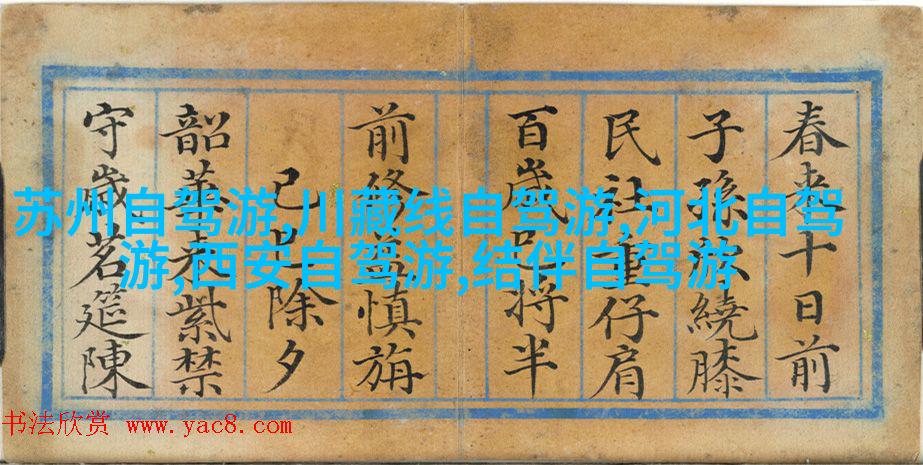 春来十日前
子孫欣繞膝
民社重仔肩
百歲已将半
前修益慎旃
己巳除夕
韶華来紫禁
守歲茗筵陳
苏州自驾游,川藏线自驾游,河北自驾
游,西安自驾游,结伴自驾游
书法欣赏 www.yac8.com